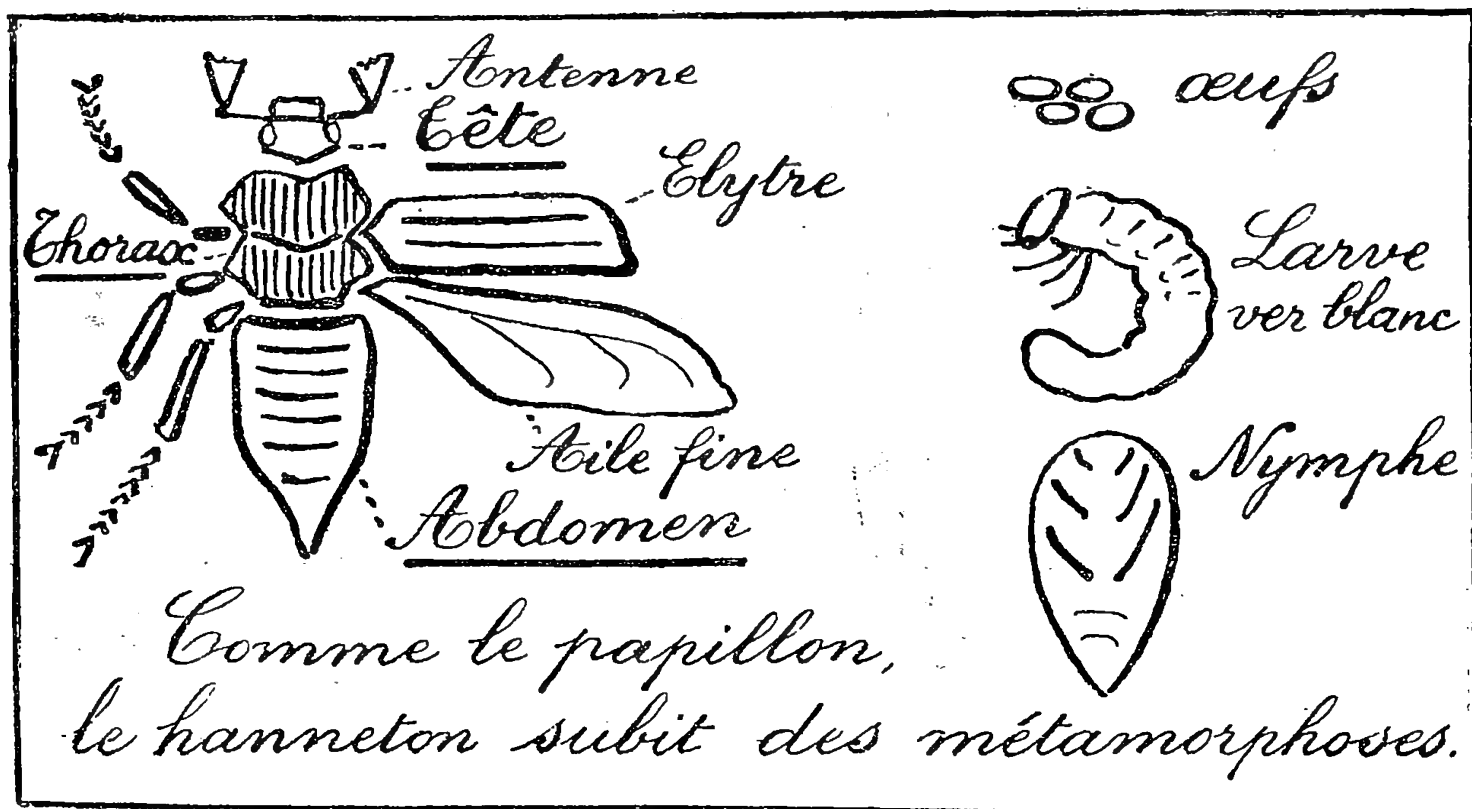 Antenne
Tête
Elytre
Thorax
Aile fine
Abdomen
œufs
Larve
ver blanc
Nymphe
Comme le papillon,
le hanneton subit des métamorphoses.